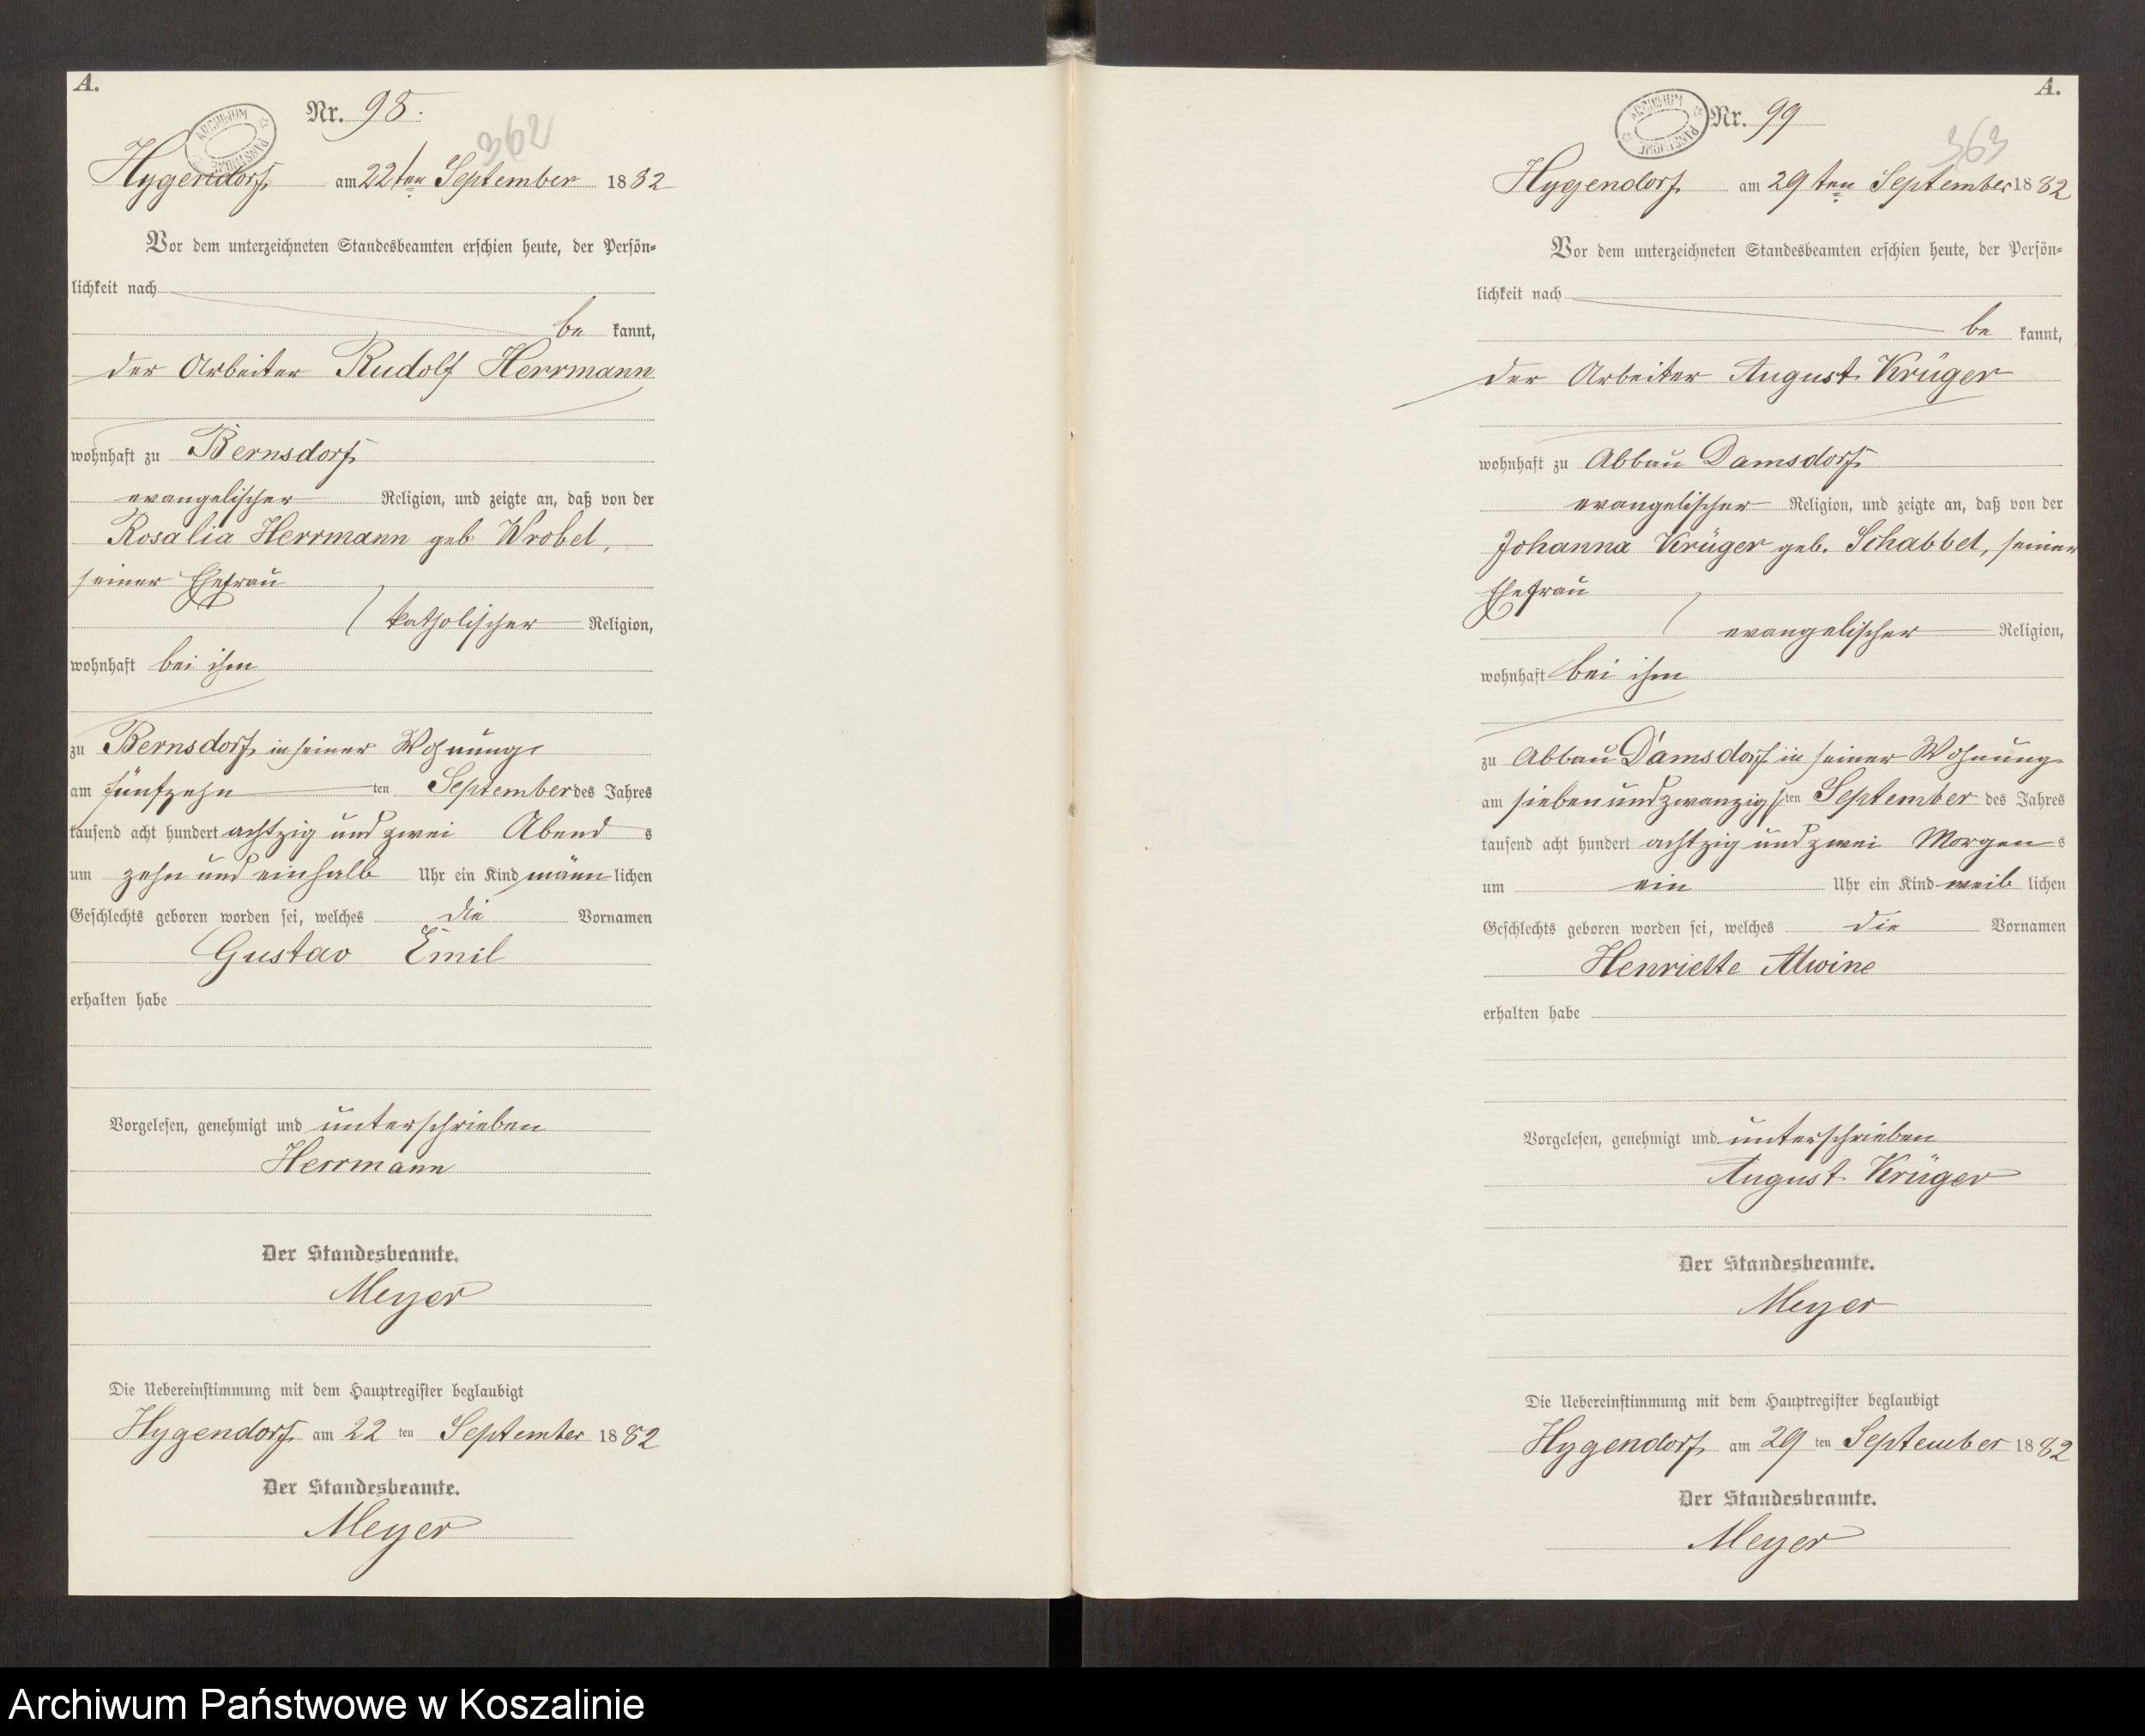 A.
Nr. 98.
362
ARCHIWUM PAŃSTWOWE
Hygendorf am 22ten September 1882
Vor dem unterzeichneten Standesbeamten erschien heute, der Persön-
lichkeit nach
be kannt,
der Arbeiter Rudolf Herrmann
wohnhaft zu Bernsdorf
evangelischer Religion, und zeigte an, daß von der
Rosalia Herrmann geb Wrobel,
seiner Ehefrau
katholischer Religion,
wohnhaft bei ihm
zu Bernsdorf in seiner Wohnung
am fünfzehn ten September des Jahres
tausend acht hundert achtzig und zwei Abend s
um zehn und einhalb Uhr ein Kind männ lichen
Geschlechts geboren worden sei, welches die Vornamen
Gustav Emil
erhalten habe
Vorgelesen, genehmigt und unterschrieben
Herrmann
Der Standesbeamte.
Meyer
Die Uebereinstimmung mit dem Hauptregister beglaubigt
Hygendorf am 22 ten September 1882
Der Standesbeamte.
Meyer
A.
ARCHIWUM PAŃSTWOWE
Nr. 99
363
Hygendorf am 29ten September 1882
Vor dem unterzeichneten Standesbeamten erschien heute, der Persön-
lichkeit nach
be kannt,
der Arbeiter August Krüger
wohnhaft zu Abbau Damsdorf
evangelischer Religion, und zeigte an, daß von der
Johanna Krüger geb. Schabbel, seiner
Ehefrau
evangelischer Religion,
wohnhaft bei ihm
zu Abbau Damsdorf in seiner Wohnung
am siebenundzwanzigs ten September des Jahres
tausend acht hundert achtzig und zwei Morgen s
um ein Uhr ein Kind weib lichen
Geschlechts geboren worden sei, welches die Vornamen
Henriette Alwine
erhalten habe
Vorgelesen, genehmigt und unterschrieben
August Krüger
Der Standesbeamte.
Meyer
Die Uebereinstimmung mit dem Hauptregister beglaubigt
Hygendorf am 29 ten September 1882
Der Standesbeamte.
Meyer
Archiwum Państwowe w Koszalinie